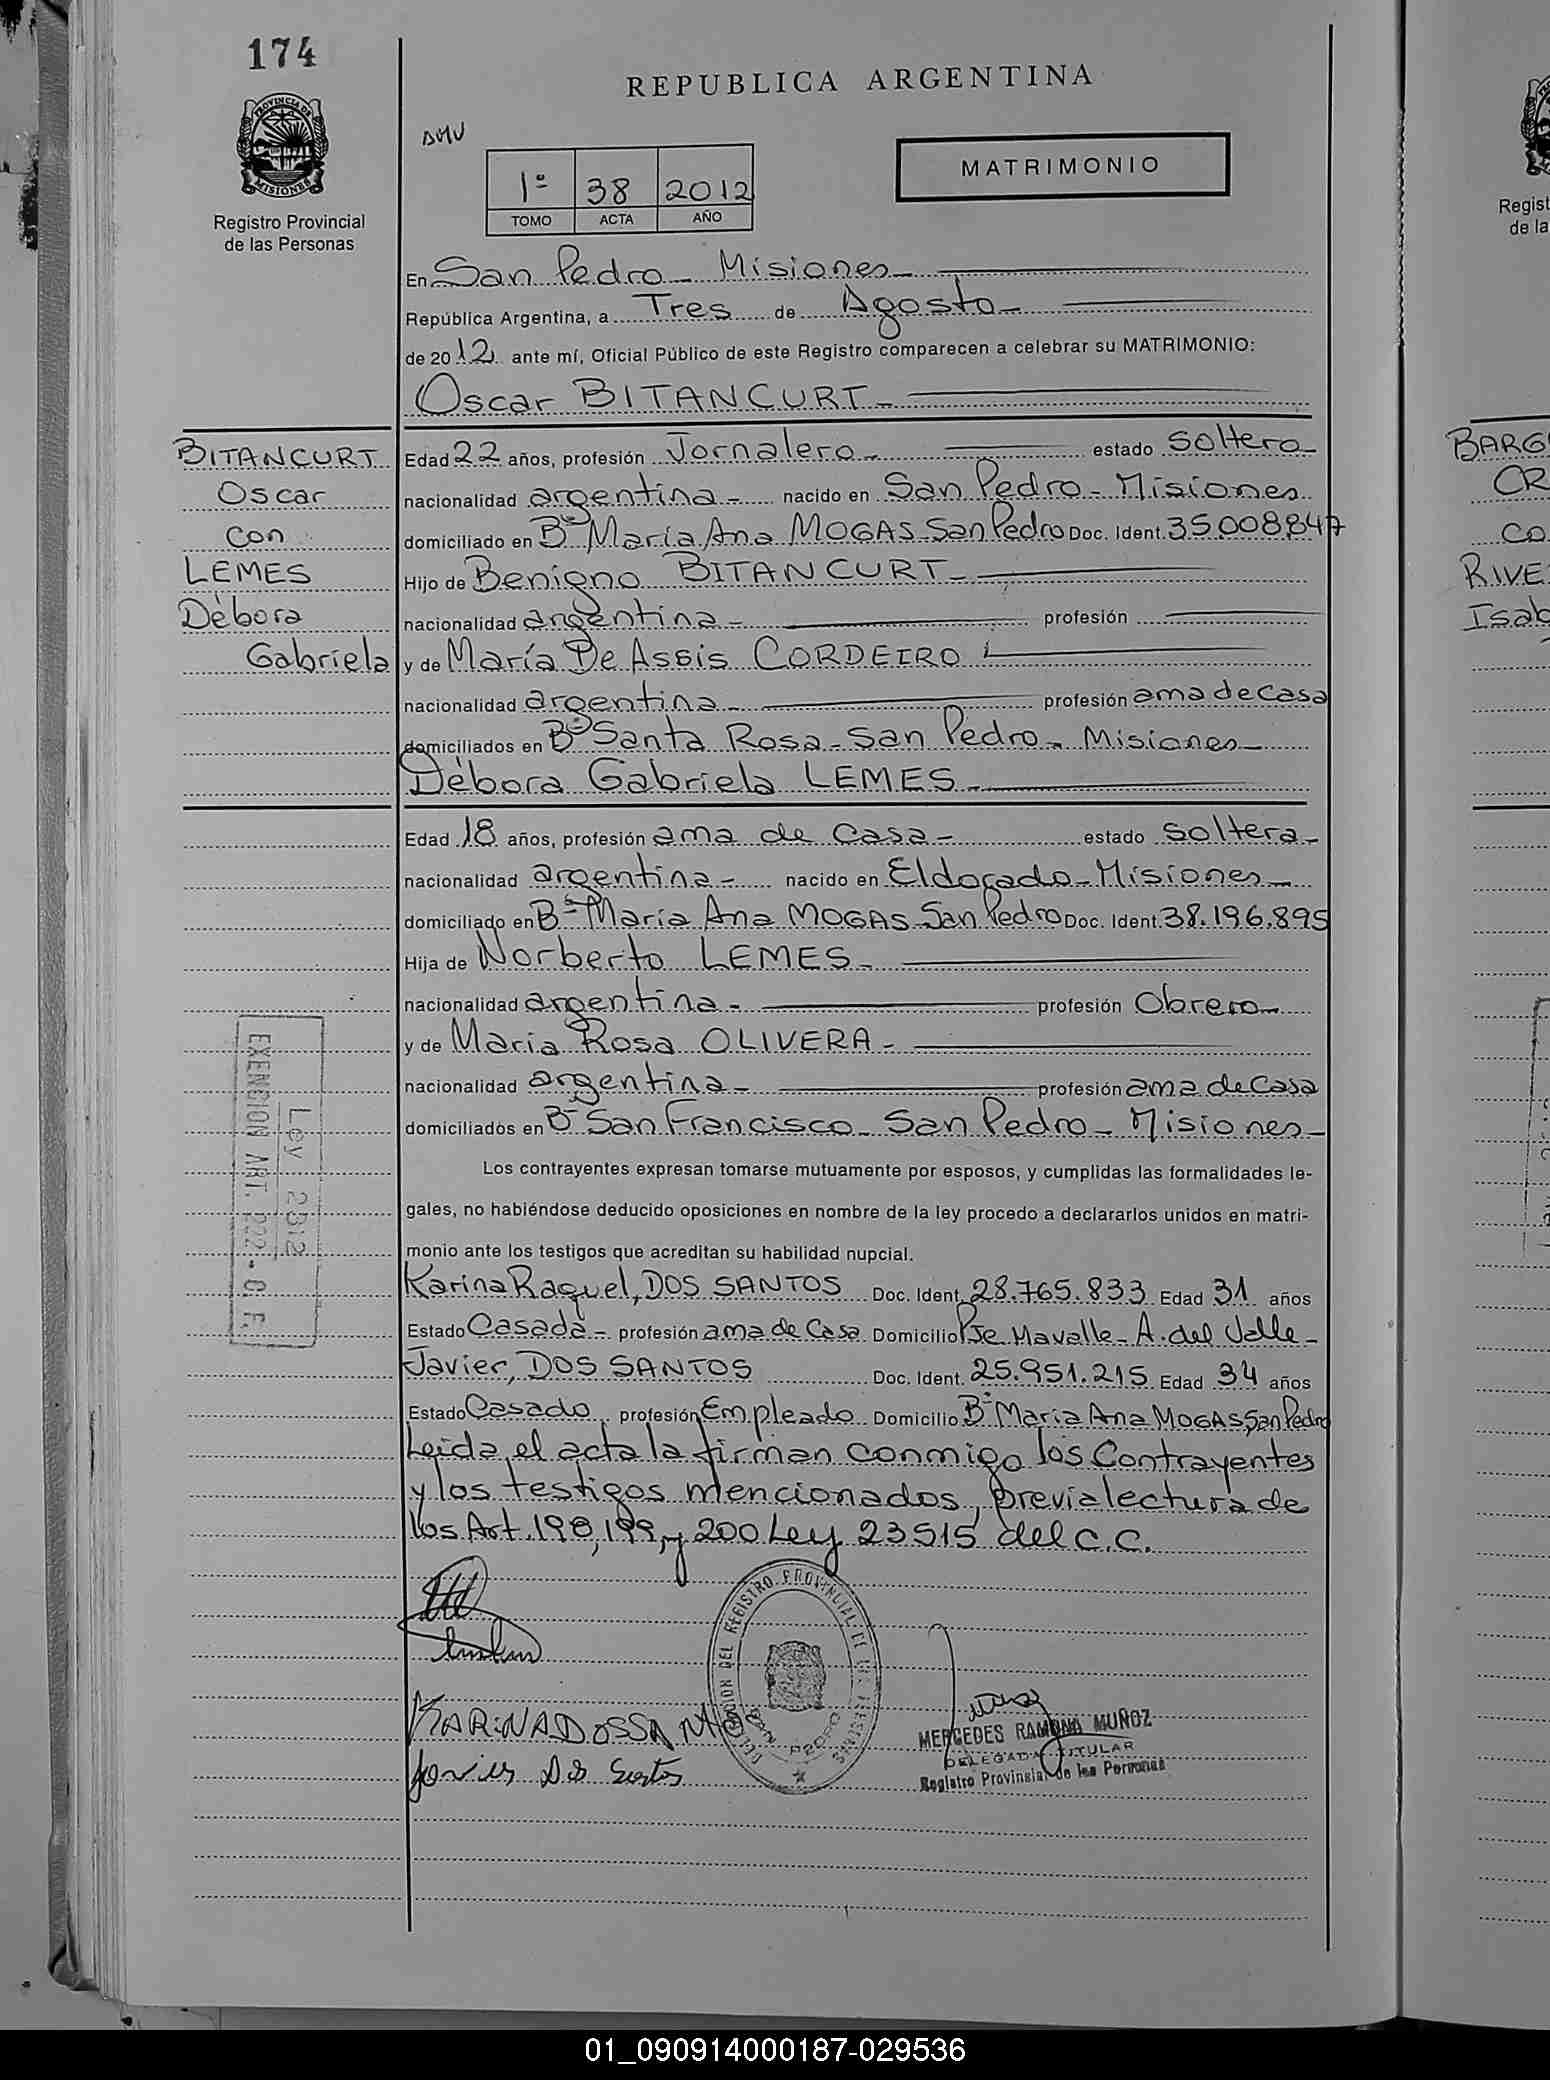 174
REPUBLICA ARGENTINA
PROVINCIA DE
MISIONES
Registro Provincial
de las Personas
1º 38 2012
TOMO ACTA AÑO
MATRIMONIO
En San Pedro - Misiones
República Argentina, a Tres de Agosto
de 2012 ante mí, Oficial Público de este Registro comparecen a celebrar su MATRIMONIO:
Oscar BITANCURT
BITANCURT
Oscar
con
LEMES
Débora
Gabriela
Edad 22 años, profesión Jornalero estado soltero
nacionalidad argentina nacido en San Pedro - Misiones
domiciliado en Bº María Ana MOGAS San Pedro Doc. Ident. 35.008.847
Hijo de Benigno BITANCURT
nacionalidad argentina profesión
y de María De Assis CORDEIRO
nacionalidad argentina profesión ama de casa
domiciliados en Bº Santa Rosa - San Pedro - Misiones
Débora Gabriela LEMES
Edad 18 años, profesión ama de casa estado soltera
nacionalidad argentina nacido en Eldorado - Misiones
domiciliado en Bº María Ana MOGAS San Pedro Doc. Ident. 38.196.895
Hija de Norberto LEMES
nacionalidad argentina profesión Obrero
y de Maria Rosa OLIVERA
nacionalidad argentina profesión ama de casa
domiciliados en Bº San Francisco - San Pedro - Misiones
Los contrayentes expresan tomarse mutuamente por esposos, y cumplidas las formalidades le-
gales, no habiéndose deducido oposiciones en nombre de la ley procedo a declararlos unidos en matri-
monio ante los testigos que acreditan su habilidad nupcial.
Karina Raquel, DOS SANTOS Doc. Ident. 28.765.833 Edad 31 años
Estado Casada profesión ama de Casa Domicilio Pje Mavalle - A. del Valle
Javier, DOS SANTOS Doc. Ident. 25.951.215 Edad 34 años
Estado Casado profesión Empleado Domicilio Bº María Ana MOGAS, San Pedro
Leída el acta la firman conmigo los Contrayentes
y los testigos mencionados, previa lectura de
los Art. 198, 199, y 200 Ley 23515 del C.C.
Ley 2312
EXENCION ART. 222 - C F.
KARiNA DOSSANtOS
Javier Dos Santos
DELEGACION DEL REGISTRO PROVINCIAL DE LAS PERSONAS
SAN PEDRO
MERCEDES RAMONA MUÑOZ
DELEGADA TITULAR
Registro Provincial de las Personas
Regist
de la
BARG
OR
co
RIVE
Isab
01_090914000187-029536